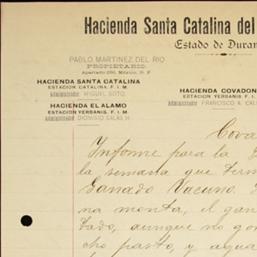 Hacienda Santa Catalina del
Estado de Duran
PABLO MARTINEZ DEL RIO
PROPIETARIO.
Apartado 286, México, D. F.
HACIENDA SANTA CATALINA
ESTACION CATALINA, F. I. M.
Administrador MIGUEL SOTO.
HACIENDA EL ALAMO
ESTACION YERBANIS, F. I. M.
Administrador DIONISIO SALAS H.
HACIENDA COVADON
ESTACION YERBANIS, F. I. M.
Administrador FRANCISCO A. CAL
Cova
Informe para la
la semana que term
Ganado Vacuno.
na monta, el gan
tado, aunque no go
cho pasto, y agua